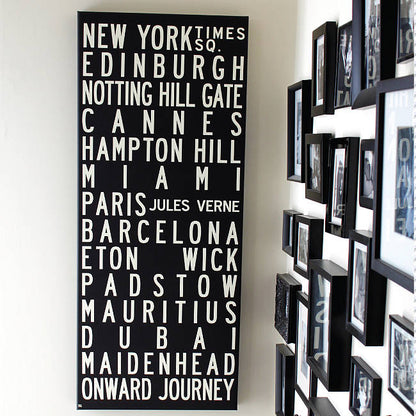 NEW YORK TIMES SQ.
EDINBURGH
NOTTING HILL GATE
CANNES
HAMPTON HILL
MIAMI
PARIS JULES VERNE
BARCELONA
ETON WICK
PADSTOW
MAURITIUS
DUBAI
MAIDENHEAD
ONWARD JOURNEY